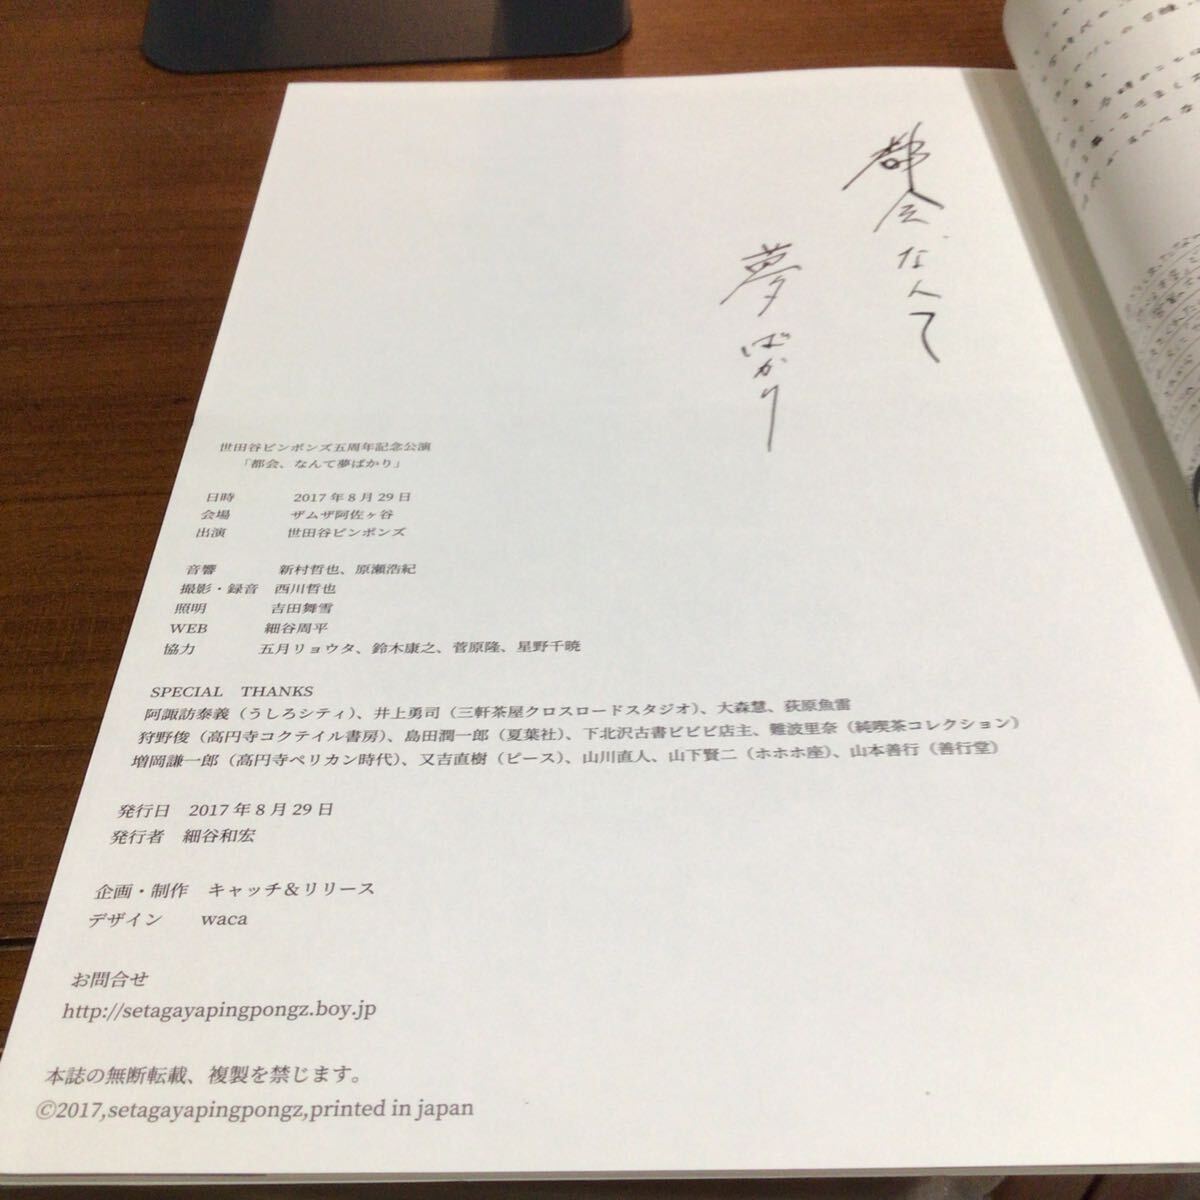 都会、なんて
夢ばかり
世田谷ピンポンズ五周年記念公演
「都会、なんて夢ばかり」
日時 2017年8月29日
会場 ザムザ阿佐ヶ谷
出演 世田谷ピンポンズ
音響 新村哲也、原瀬浩紀
撮影・録音 西川哲也
照明 吉田舞雪
WEB 細谷周平
協力 五月リョウタ、鈴木康之、菅原隆、星野千暁
SPECIAL THANKS
阿諏訪泰義（うしろシティ）、井上勇司（三軒茶屋クロスロードスタジオ）、大森慧、荻原魚雷
狩野俊（高円寺コクテイル書房）、島田潤一郎（夏葉社）、下北沢古書ビビビ店主、難波里奈（純喫茶コレクション）
増岡謙一郎（高円寺ペリカン時代）、又吉直樹（ピース）、山川直人、山下賢二（ホホホ座）、山本善行（善行堂）
発行日 2017年8月29日
発行者 細谷和宏
企画・制作 キャッチ＆リリース
デザイン waca
お問合せ
http://setagayapingpongz.boy.jp
本誌の無断転載、複製を禁じます。
©2017,setagayapingpongz,printed in japan